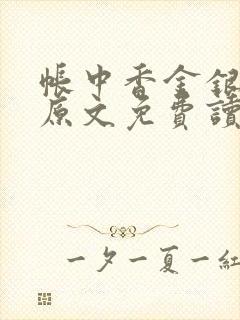 帳中香金銀
原文免費讀
一夕一夏一紅